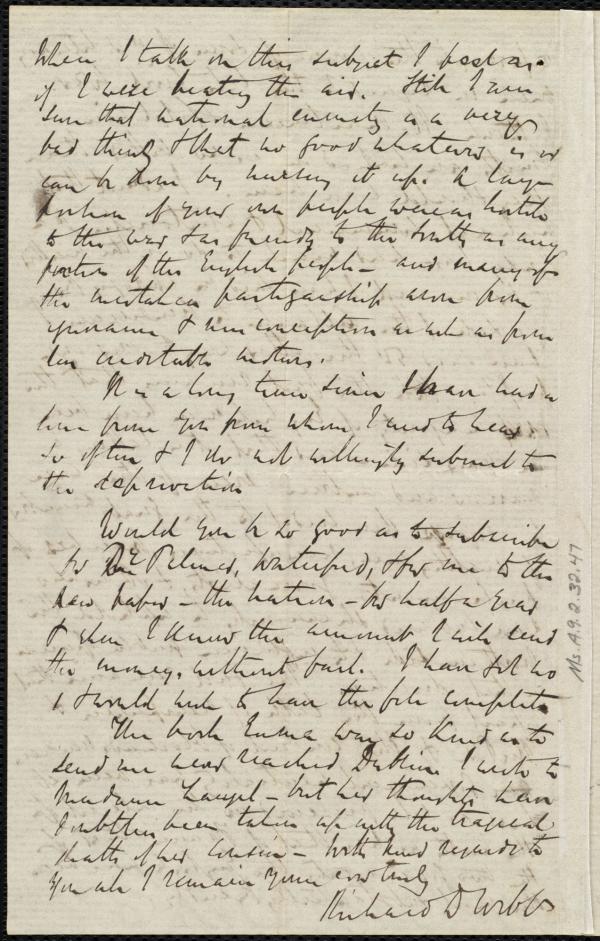 When I talk on this subject I feel as
if I were beating the air. Still I am
sure that national enmity is a very
bad thing & that no good whatever is or
can be done by nursing it up. A large
portion of your own people were as hostile
to the war & as friendly to the South as any
portion of the English people – and many of
the mistaken partizanship arose from
ignorance & misconception as well as from
less creditable motives.
It is a long time since I have had a
line from you from whom I used to hear
so often & I do not willingly submit to
the deprivation
Would you be so good as to subscribe
for Dr Palmer, Waterford, & for me to the
new paper – the Nation – for half a year
& when I know the amount I will send
the money, without fail. I have got no
1 & would wish to have the file complete
The book Emma was so kind as to
send me never reached Dublin. I wrote to
Madame Laugel – but her thoughts have
doubtless been taken up with the tragical
death of her cousin – with kind regards to
you all I remain yours ever truly
Richard D Webb
Ms. A.9.2.32.47